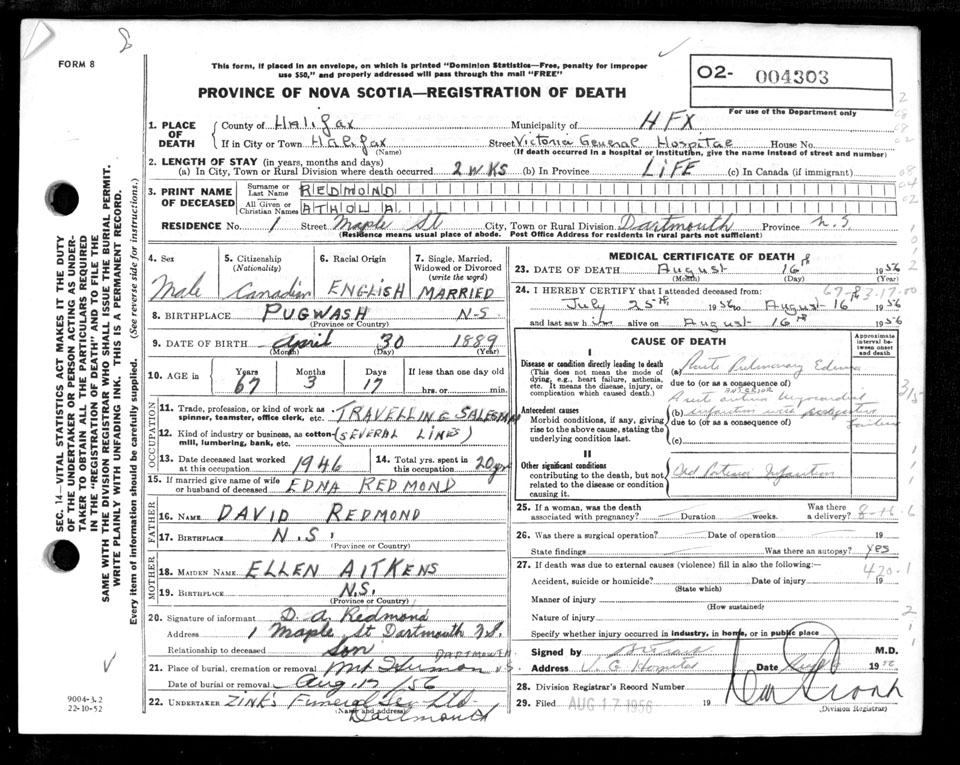 8
FORM 8
This form, if placed in an envelope, on which is printed "Dominion Statistics—Free, penalty for improper
use $50," and properly addressed will pass through the mail "FREE"
O2- 004303
PROVINCE OF NOVA SCOTIA—REGISTRATION OF DEATH
For use of the Department only
1. PLACE OF DEATH
County of Halifax Municipality of HFX
If in City or Town Halifax Street Victoria General Hospital House No.
(Name) (If death occurred in a hospital or institution, give the name instead of street and number)
2. LENGTH OF STAY (in years, months and days)
(a) In City, Town or Rural Division where death occurred 2 WKS (b) In Province LiFE (c) In Canada (if immigrant)
3. PRINT NAME OF DECEASED
Surname or Last Name REDMOND
All Given or Christian Names ATHOL A
RESIDENCE No. 1 Street Maple St City, Town or Rural Division Dartmouth Province N.S
(Residence means usual place of abode. Post Office Address for residents in rural parts not sufficient)
4. Sex Male
5. Citizenship (Nationality) Canadian
6. Racial Origin ENGLISH
7. Single, Married, Widowed or Divorced (write the word) MARRIED
8. BIRTHPLACE PUGWASH N-S.
(Province or Country)
9. DATE OF BIRTH April 30 1889
(Month) (Day) (Year)
10. AGE in Years 67 Months 3 Days 17 If less than one day old
hrs. or min.
OCCUPATION
11. Trade, profession, or kind of work as
spinner, teamster, office clerk, etc. TRAVELLING SALESMAN
12. Kind of industry or business, as cotton-
mill, lumbering, bank, etc. (SEVERAL LINES)
13. Date deceased last worked
at this occupation 1946
14. Total yrs. spent in
this occupation 20 yrs
15. If married give name of wife
or husband of deceased EDNA REDMOND
FATHER
16. NAME DAVID REDMOND
17. BIRTHPLACE N.S.
(Province or Country)
MOTHER
18. MAIDEN NAME ELLEN AITKENS
19. BIRTHPLACE N.S.
(Province or Country)
20. Signature of informant D. A. Redmond
Address 1 Maple St Dartmouth N.S.
Relationship to deceased Son
21. Place of burial, cremation or removal Mt Hermon DARTMOUTH N.S.
Date of burial or removal Aug. 17 /56
22. UNDERTAKER ZINK'S Funeral Ser Ltd
(Name and address) Dartmouth
MEDICAL CERTIFICATE OF DEATH
23. DATE OF DEATH August 16th 1956
(Month) (Day) (Year)
24. I HEREBY CERTIFY that I attended deceased from
July 25th 1956 to August 16 1956
and last saw him alive on August 16th 1956
CAUSE OF DEATH
Approximate interval between onset and death
I
Disease or condition directly leading to death
(This does not mean the mode of
dying, e.g., heart failure, asthenia,
etc. It means the disease, injury, or
complication which caused death.)
(a) Acute Pulmonary Edema
due to (or as a consequence of)
ANTERIOR
Antecedent causes
Morbid conditions, if any, giving
rise to the above cause, stating the
underlying condition last.
(b) infarction with
due to (or as a consequence of)
failure
(c)
II
Other significant conditions
contributing to the death, but not
related to the disease or condition
causing it.
Old Posterior Infarction
25. If a woman, was the death
associated with pregnancy? Duration weeks. Was there
a delivery?
8-16-6
26. Was there a surgical operation? Date of operation 19
State findings Was there an autopsy? yes
420.1
27. If death was due to external causes (violence) fill in also the following:
Accident, suicide or homicide? Date of injury 19
(State which)
Manner of injury
(How sustained)
Nature of injury
Specify whether injury occurred in industry, in home, or in public place
Signed by M.D.
Address V. G. Hospital Date 1956
28. Division Registrar's Record Number
29. Filed AUG 17 1956 19
(Division Registrar)
SEC. 14—VITAL STATISTICS ACT MAKES IT THE DUTY
OF THE UNDERTAKER OR PERSON ACTING AS UNDER-
TAKER TO OBTAIN ALL THE PARTICULARS REQUIRED
IN THE "REGISTRATION OF DEATH" AND TO FILE THE
SAME WITH THE DIVISION REGISTRAR WHO SHALL ISSUE THE BURIAL PERMIT.
WRITE PLAINLY WITH UNFADING INK. THIS IS A PERMANENT RECORD.
Every item of information should be carefully supplied. (See reverse side for instructions.)
9004-3.2
22-10-52